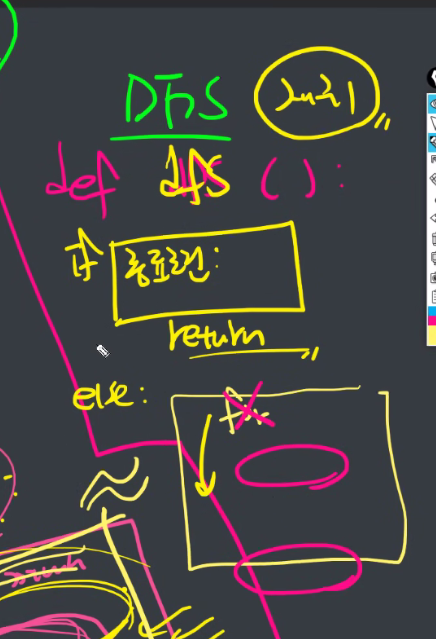 DFS 재귀
def dfs ( ) :
if 종료조건:
return
else: